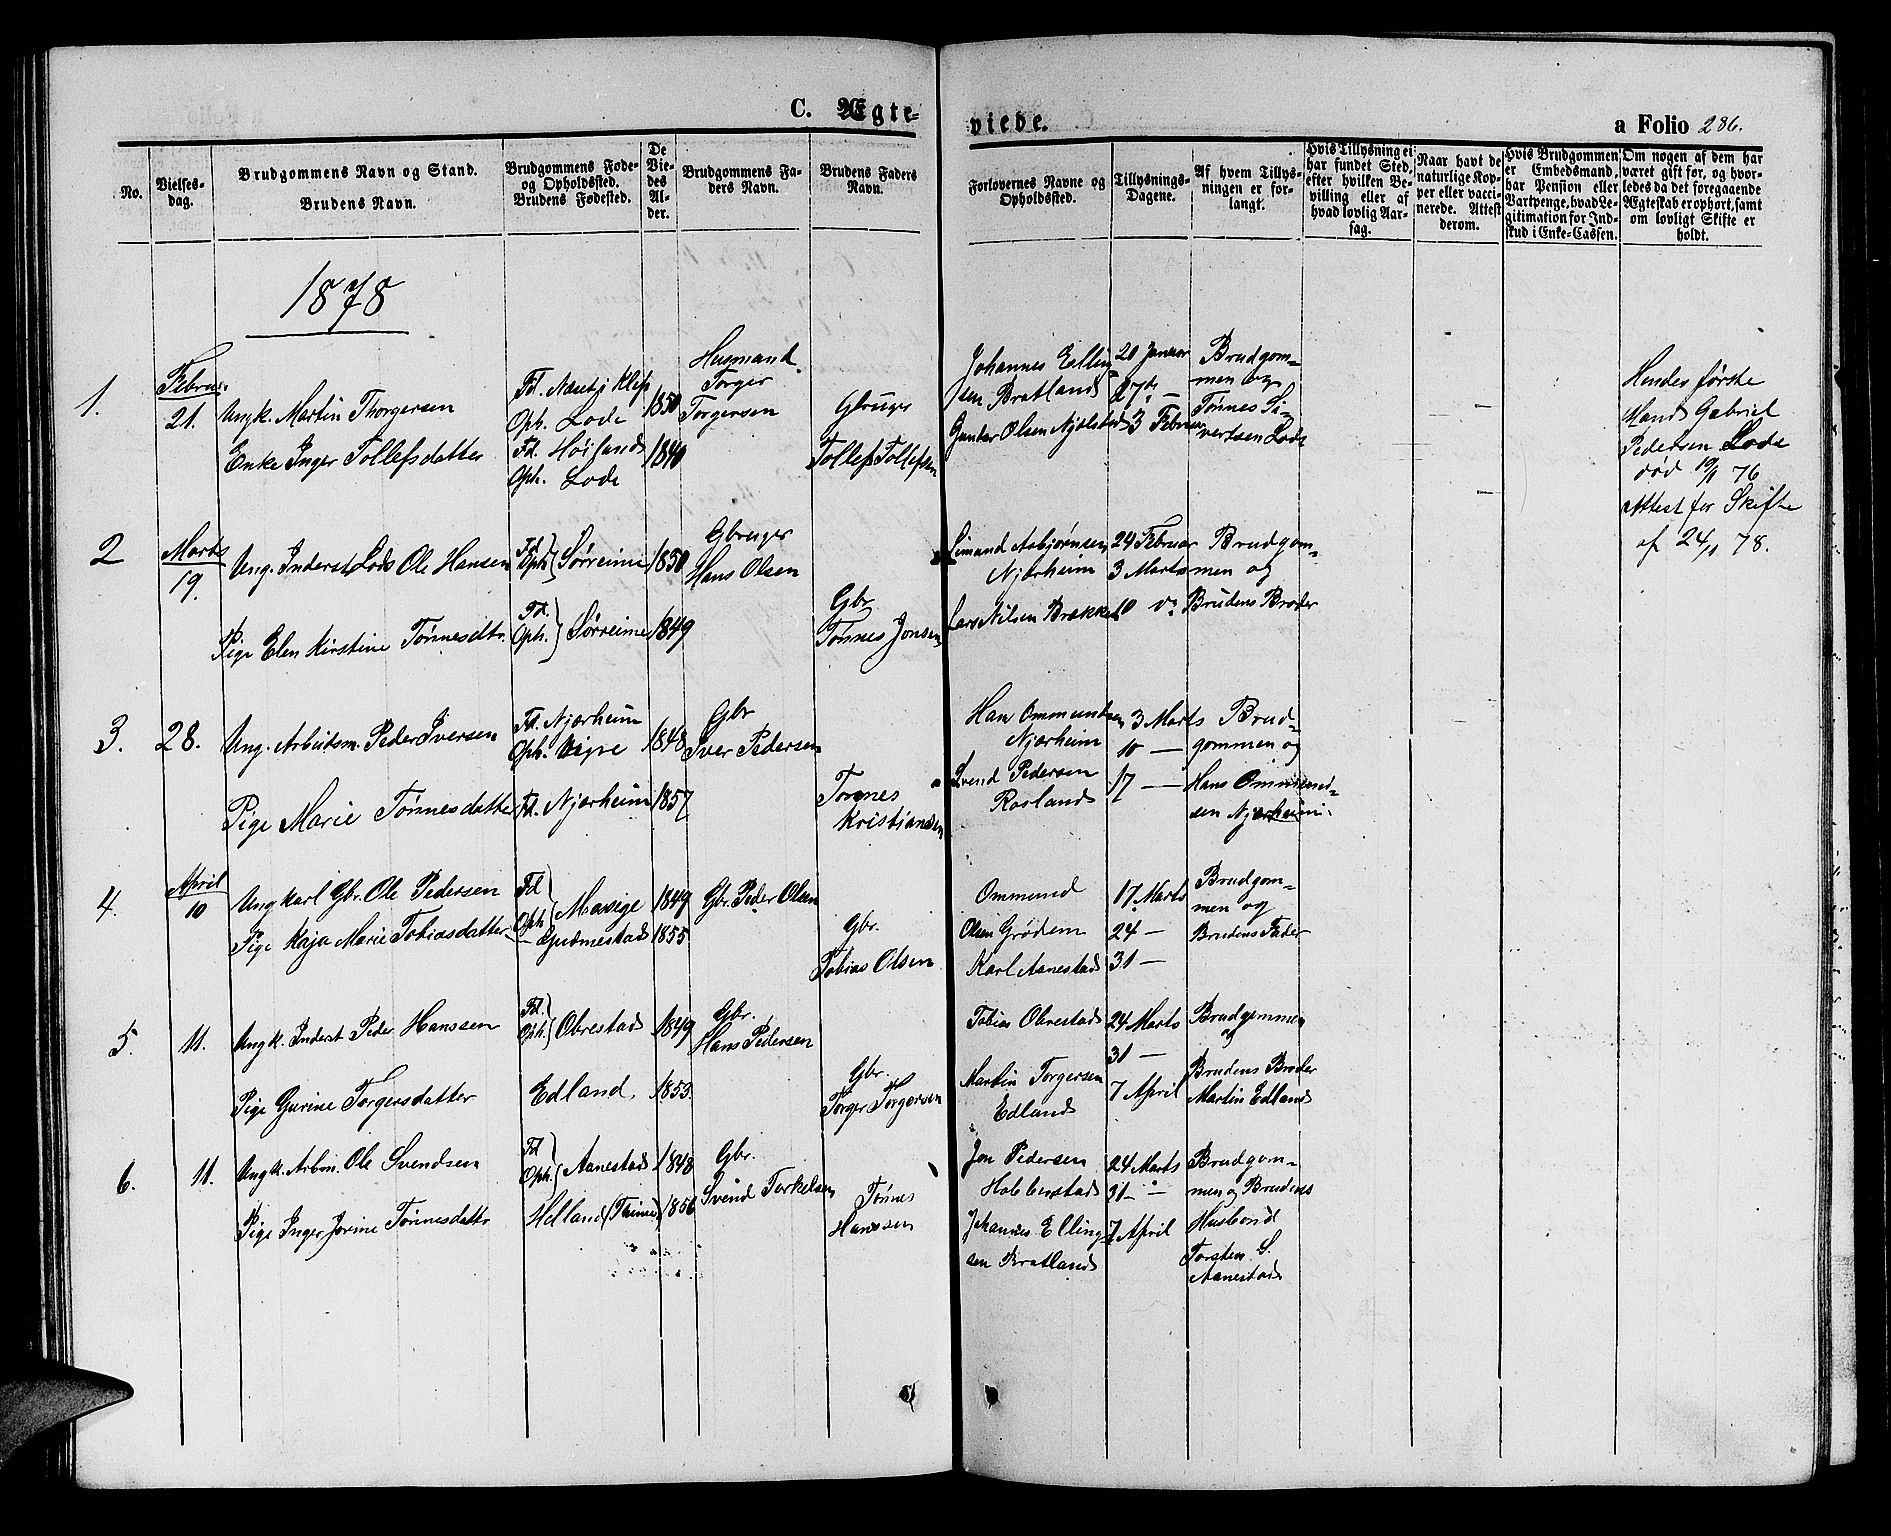 C. Ægte-
viede.
a Folio 286.
No.
Vielses-
dag.
Brudgommens Navn og Stand.
Brudens Navn.
Brudgommens Føde-
og Opholdssted.
Brudens Fødested.
De
Vie-
des
Al-
der.
Brudgommens Fa-
ders Navn.
Brudens Faders
Navn.
Forlovernes Navne og
Opholdssted.
Tillysnings-
Dagene.
Af hvem Tillys-
ningen er for-
langt.
Hvis Tillysning ei
har fundet Sted,
efter hvilken Be-
villing eller af
hvad lovlig Aar-
sag.
Naar havt de
naturlige Kop-
per eller vacci-
nerede. Attest
derom.
Hvis Brudgommen
er Embedsmand,
har Pension eller
Vartpenge, hvad Le-
gitimation for Ind-
skud i Enke-Cassen.
Om nogen af dem har
været gift før, og hvor-
ledes da det foregaaende
Ægteskab er ophørt, samt
om lovligt Skifte er
holdt.
1878
1.
Febru.
21.
Ungk. Martin Thorgersen
Enke Inger Tollefsdatter
Fd. Næsby Klep
Oph. Lode
Fd. Høiland
Oph. Lode
1850
1840
Husmand
Torger
Torgersen
Gbruger
Tollef Tollefsen
Johannes Elling
sen Bratland
Gunder Olsen Njølstad
20 Januar
27de —
3 Februar
Brudgom-
men og
Tønnes Si-
vertsen Lode
Hendes første
Mand Gabriel
Pedersen Lode
død 19/1 76
Attest for Skifte
af 24/1 78.
2
Marts
19.
Ung. Inderst Lods Ole Hansen
Pige Elen Kirstine Tønnesdtr.
Fd.
Oph. Sørreime
Fd.
Oph. Sørreime
1850
1849
Gbruger
Hans Olsen
Gbr.
Tønnes Jonsen
Simund Asbjørnsen
Njærheim
Lars Nilsen Brekke
24 Februar
3 Marts
10 do
Brudgom-
men og
Brudens Broder
3.
28.
Ung. Arbeidsm. Peder Iversen
Pige Marie Tønnesdatter
Fd. Njærheim
Oph. Vigre
Fd. Njærheim
1848
1857
Gbr
Iver Pedersen
Tønnes
Kristiansen
Han Ommundsen
Njærheim
Svend Pedersen
Rosland
3 Marts
10 —
17 —
Brud-
gommen og
Hans Ommund-
sen Njærheim.
4.
April
10
Ungkarl Gbr. Ole Pedersen
Pige Kaja Marie Tobiasdatter
Fd
Oph Mosige
— Gudmestad
1849
1855
Gbr. Peder Olsen
Gbr.
Tobias Olsen
Ommund
Olsen Grødem
Karl Aanestad
17. Marts
24 —
31 —
Brudgom-
men og
Brudens Fader
5.
11.
Ungk. Inderst Peder Hanssen
Pige Gurine Torgersdatter
Fd.
Oph. Obrestad
Edland.
1849
1853.
Gbr.
Hans Pedersen
Gbr.
Torger Torgersen
Tobias Obrestad
Martin Torgersen
Edland
24 Marts
31 —
7 April
Brudgommen
og
Brudens Broder
Martin Edland
6.
11.
Ungk. Arbm. Ole Svendsen
Pige Inger Jorine Tønnesdattr
Fd
Oph. Aanestad
Helland (Thime)
1848
1856
Gbr.
Svend Torkelsen
Tønnes
Hanssen
Jon Pedersen
Hobberstad
Johannes Elling-
sen Bratland
24 Marts
31 —
7 April
Brudgom-
men og Brudens
Husbond
Torsten S.
Aanestad